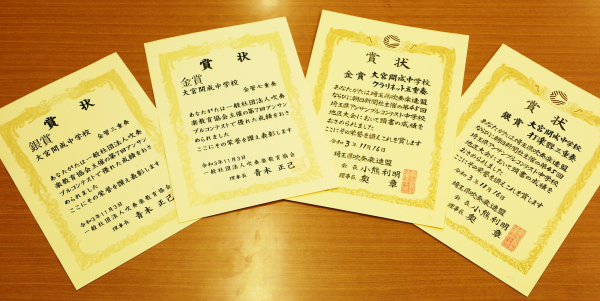 賞状
銀賞
大宮開成中学校 金管三重奏
あなたがたは一般社団法人吹奏
楽教育協会主催の第7回アンサン
ブルコンテストで優れた成績をおさ
められました
ここにその栄誉を讃え表彰します
令和3年11月3日
一般社団法人吹奏楽教育協会
理事長 青木 正己
賞状
金賞
大宮開成中学校 金管七重奏
あなたがたは一般社団法人吹奏
楽教育協会主催の第7回アンサン
ブルコンテストで優れた成績をおさ
められました
ここにその栄誉を讃え表彰します
令和3年11月3日
一般社団法人吹奏楽教育協会
理事長 青木 正己
賞状
金賞 大宮開成中学校
クラリネット五重奏
あなたがたは埼玉県吹奏楽連盟
ならびに朝日新聞社主催の第45回
埼玉県アンサンブルコンテスト中学校
地区大会において頭書の成績を
おさめられました
ここにその栄誉をたたえこれを賞します
令和3年11月16日
埼玉県吹奏楽連盟
会長 小熊利明
理事長 奥 章
賞状
銀賞 大宮開成中学校
打楽器三重奏
あなたがたは埼玉県吹奏楽連盟
ならびに朝日新聞社主催の第45回
埼玉県アンサンブルコンテスト中学校
地区大会において頭書の成績を
おさめられました
ここにその栄誉をたたえこれを賞します
令和3年11月16日
埼玉県吹奏楽連盟
会長 小熊利明
理事長 奥 章